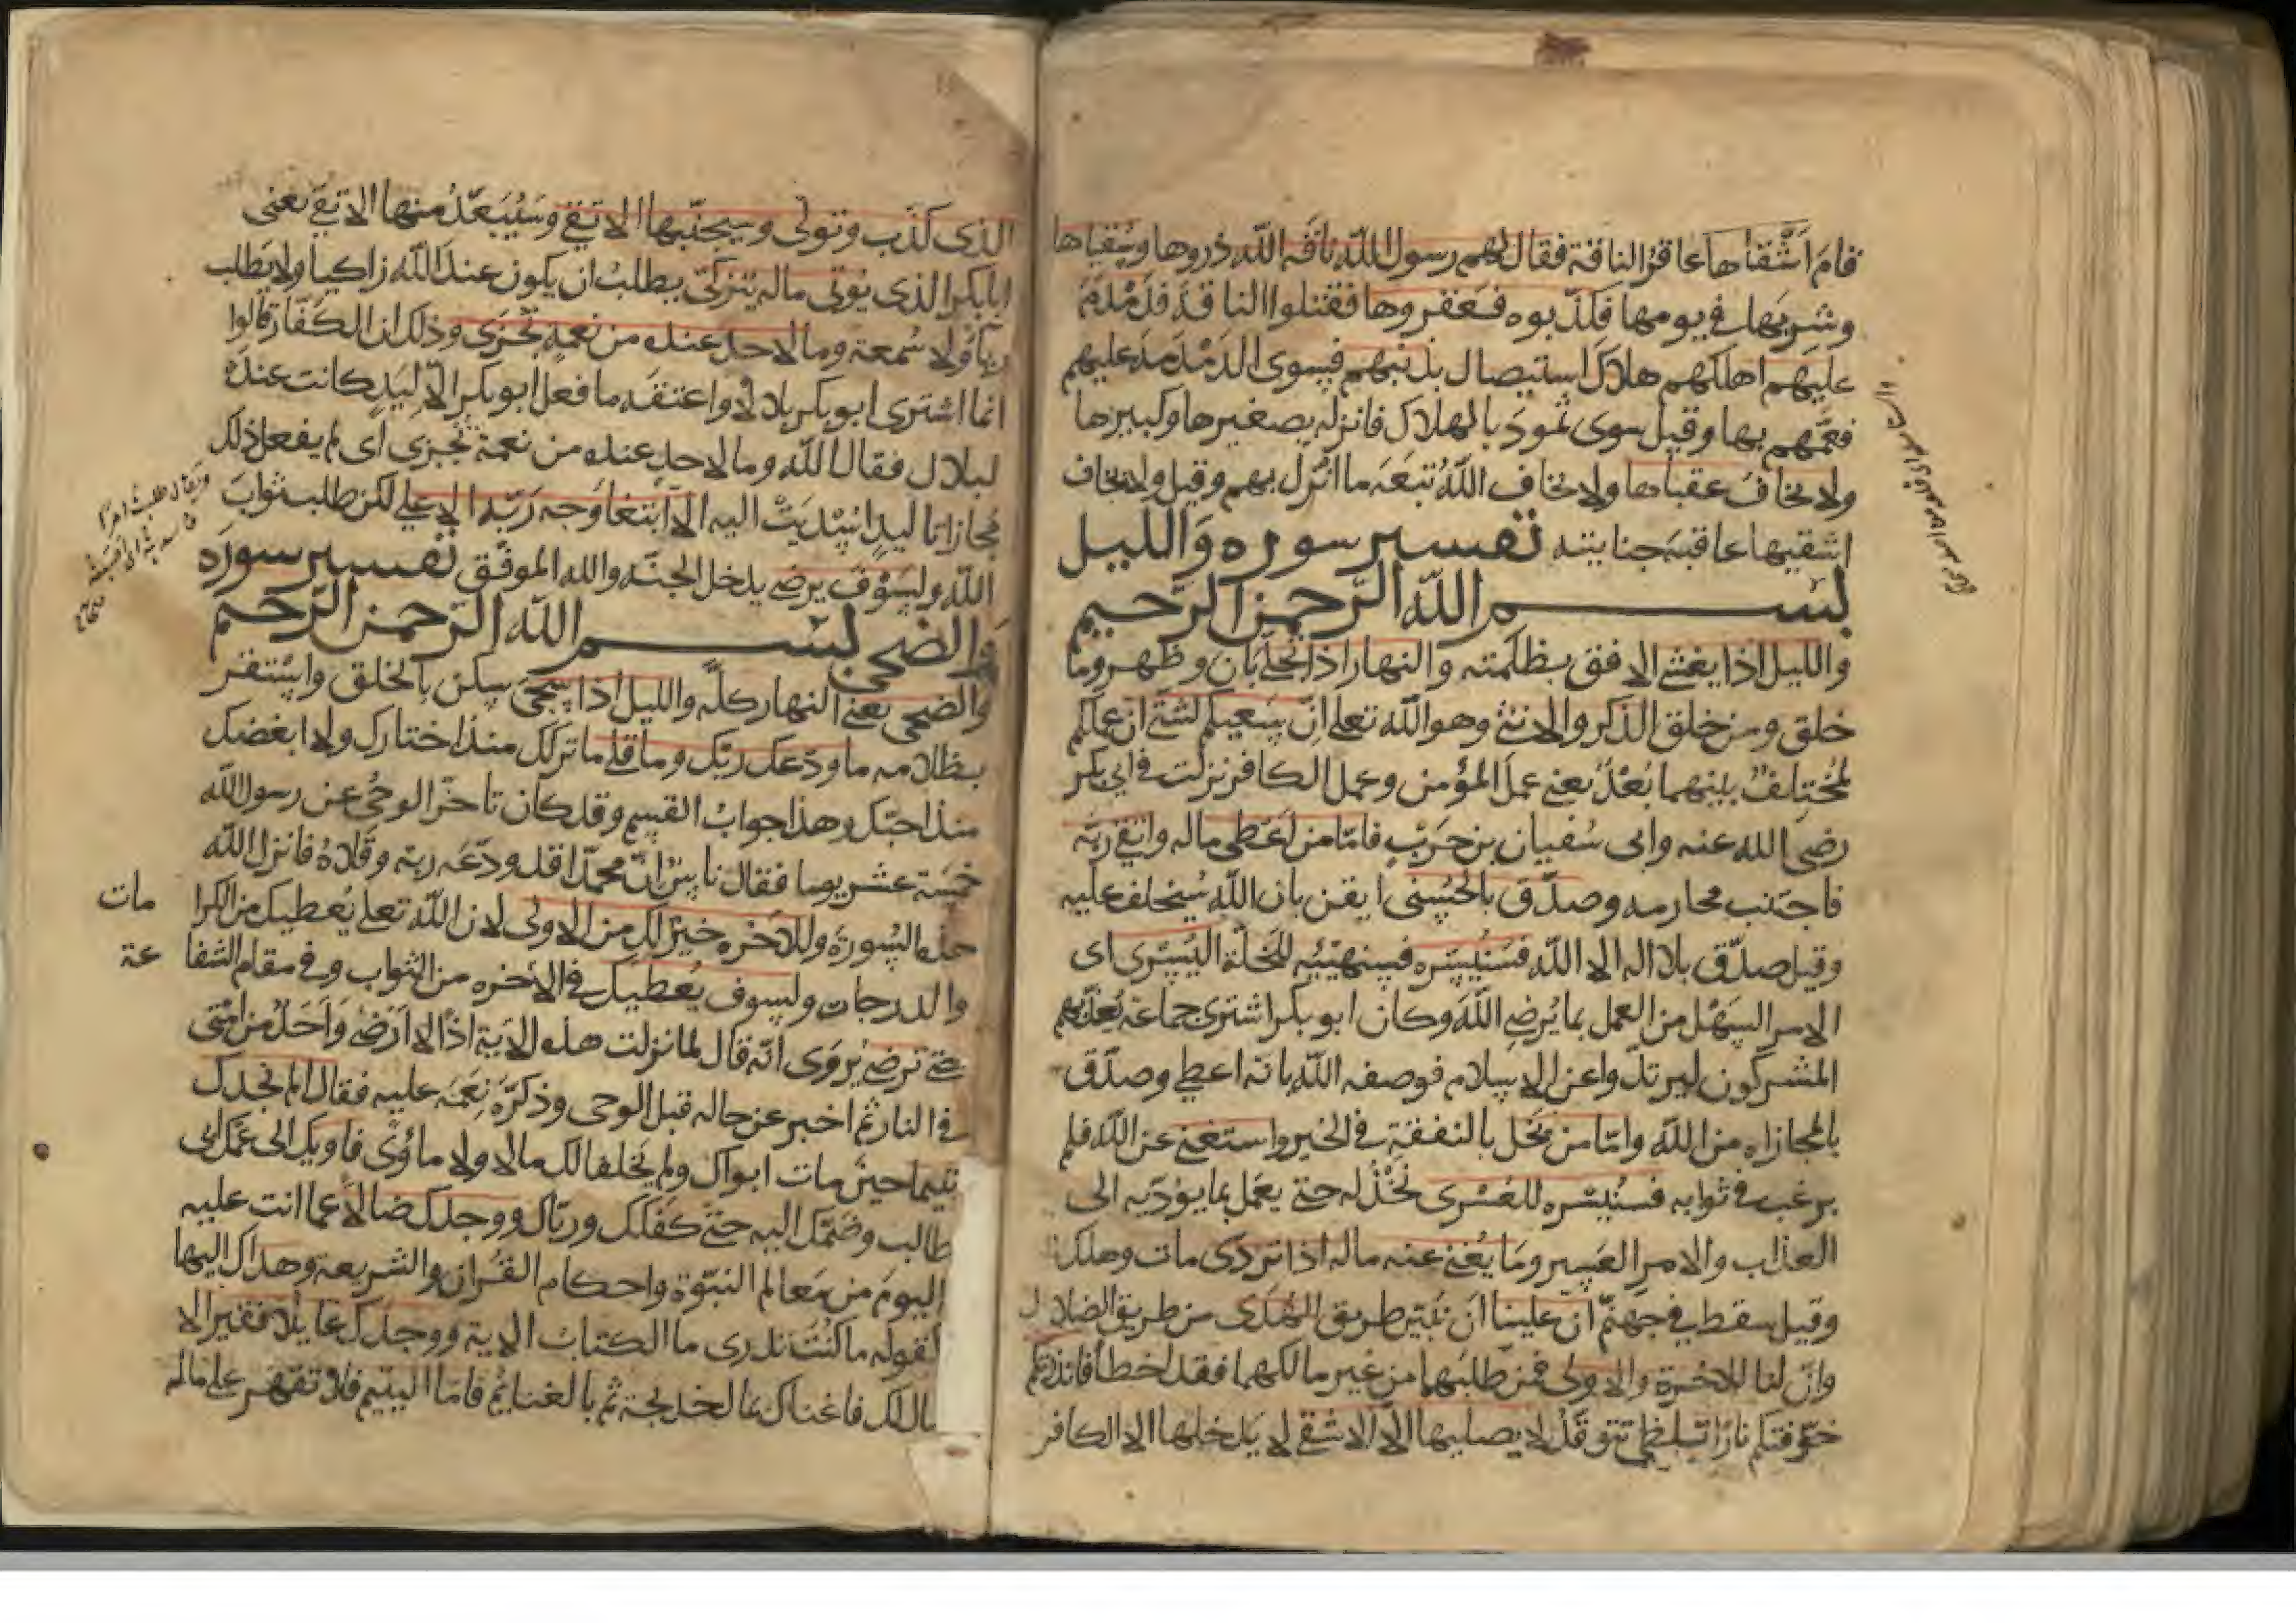 قام اشقاها عاقر الناقة فقال لهم رسول الله ناقة الله ذروها وسقياها
وشربها في يومها فكذبوه فعقروها فقتلوا الناقة فدمدم
عليهم اهلكهم هلاك استيصال بذنبهم فسوى الدمدمة عليهم
فعمهم بها وقيل سوى ثمود بالهلاك فانزله بصغيرها وكبيرها
ولا يخاف عقباها ولا يخاف الله تبعة ما انزل بهم وقيل ولا يخاف
اشقيها عاقبة جنايته تفسير سورة والليل
بسم الله الرحمن الرحيم
والليل اذا يغشى الافق بظلمته والنهار اذا تجلى بان وظهر وما
خلق ومن خلق الذكر والانثى وهو الله تعلى ان سعيكم لشتى ان عملكم
لمختلف بينهما بعد يعني عمل المؤمن وعمل الكافر نزلت في ابي بكر
رضي الله عنه وابي سفيان بن حرب فاما من اعطى ماله واتقى ربه
فاجتنب محارمه وصدق بالحسنى ايقن بان الله سيخلف عليه
وقيل صدق بلا اله الا الله فسنيسره فسنهيئه للخلة اليسرى اى
الامر السهل من العمل بما يرضي الله وكان ابو بكر اشترى جماعة يعذبهم
المشركون ليرتدوا عن الاسلام فوصفه الله بانه اعطى وصدق
بالمجازاه من الله واما من بخل بالنفقة في الخير واستغنى عن الله فلم
يرغب في ثوابه فسنيسره للعسرى نخذله حتى يعمل بما يؤديه الى
العذاب والامر العسير وما يغني عنه ماله اذا تردى مات وهلك
وقيل سقط في جهنم ان علينا ان نبين طريق الهدى من طريق الضلال
وان لنا للاخرة والاولى فمن طلبهما من غير مالكهما فقد اخطأ فانذرتكم
خوفتكم نارا تلظى تتوقد لا يصليها الا الاشقى لا يدخلها الا الكافر
الذى كذب وتولى وسيجنبها الاتقى وسيبعد منها الاتقى يعني
ابا بكر الذى يؤتى ماله يتزكى يطلب ان يكون عند الله زاكيا ولا يطلب
رياء ولا سمعة وما لاحد عنده من نعمة تجزى وذلك ان الكفار قالوا
انما اشترى ابو بكر بلالا واعتقه ما فعل ابو بكر الا ليد كانت عنده
لبلال فقال الله وما لاحد عنده من نعمة تجزى اى لم يفعل ذلك
مجازاة ليد اسديت اليه الا ابتغاء وجه ربه الاعلى لكن طلب ثواب
الله ولسوف يرضى يدخل الجنة والله الموفق تفسير سورة
والضحى بسم الله الرحمن الرحيم
والضحى يعني النهار كله والليل اذا سجى سكن بالخلق واستقر
بظلامه ما ودعك ربك وما قلى ما تركك منذ اختارك ولا ابغضك
منذ احبك وهذا جواب القسم وقد كان تاخر الوحي عن رسول الله
خمسة عشر يوما فقال ناس ان محمدا قد ودعه ربه وقلاه فانزل الله
هذه السورة وللاخرة خير لك من الاولى لان الله تعلى يعطيك من الكرا مات
والدرجات ولسوف يعطيك في الاخره من الثواب وفي مقام الشفا عة
حتى ترضى يروى انه قال لما نزلت هذه الاية اذا لا ارضى واحد من امتى
في النار ثم اخبر عن حاله قبل الوحى وذكره نعمه عليه فقال الم يجدك
يتيما حين مات ابواك ولم يخلفا لك مالا ولا مأوى فاويك الى عمك ابى
طالب وضمك اليه حتى كفلك ورباك ووجدك ضالا عما انت عليه
اليوم من معالم النبوة واحكام القران والشريعة وهداك اليها
لقوله ما كنت تدرى ما الكتاب الاية ووجدك عايلا فقيرا لا
مال لك فاغناك بمال خديجة ثم بالغنايم فاما اليتيم فلا تقهر على ماله